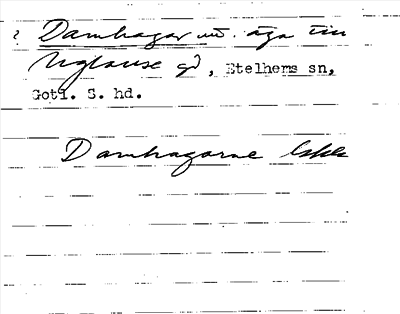 ? Damhagar nu. äga till
Uglause gd, Etelhems sn,
Gotl. S. hd.
Damhagarne